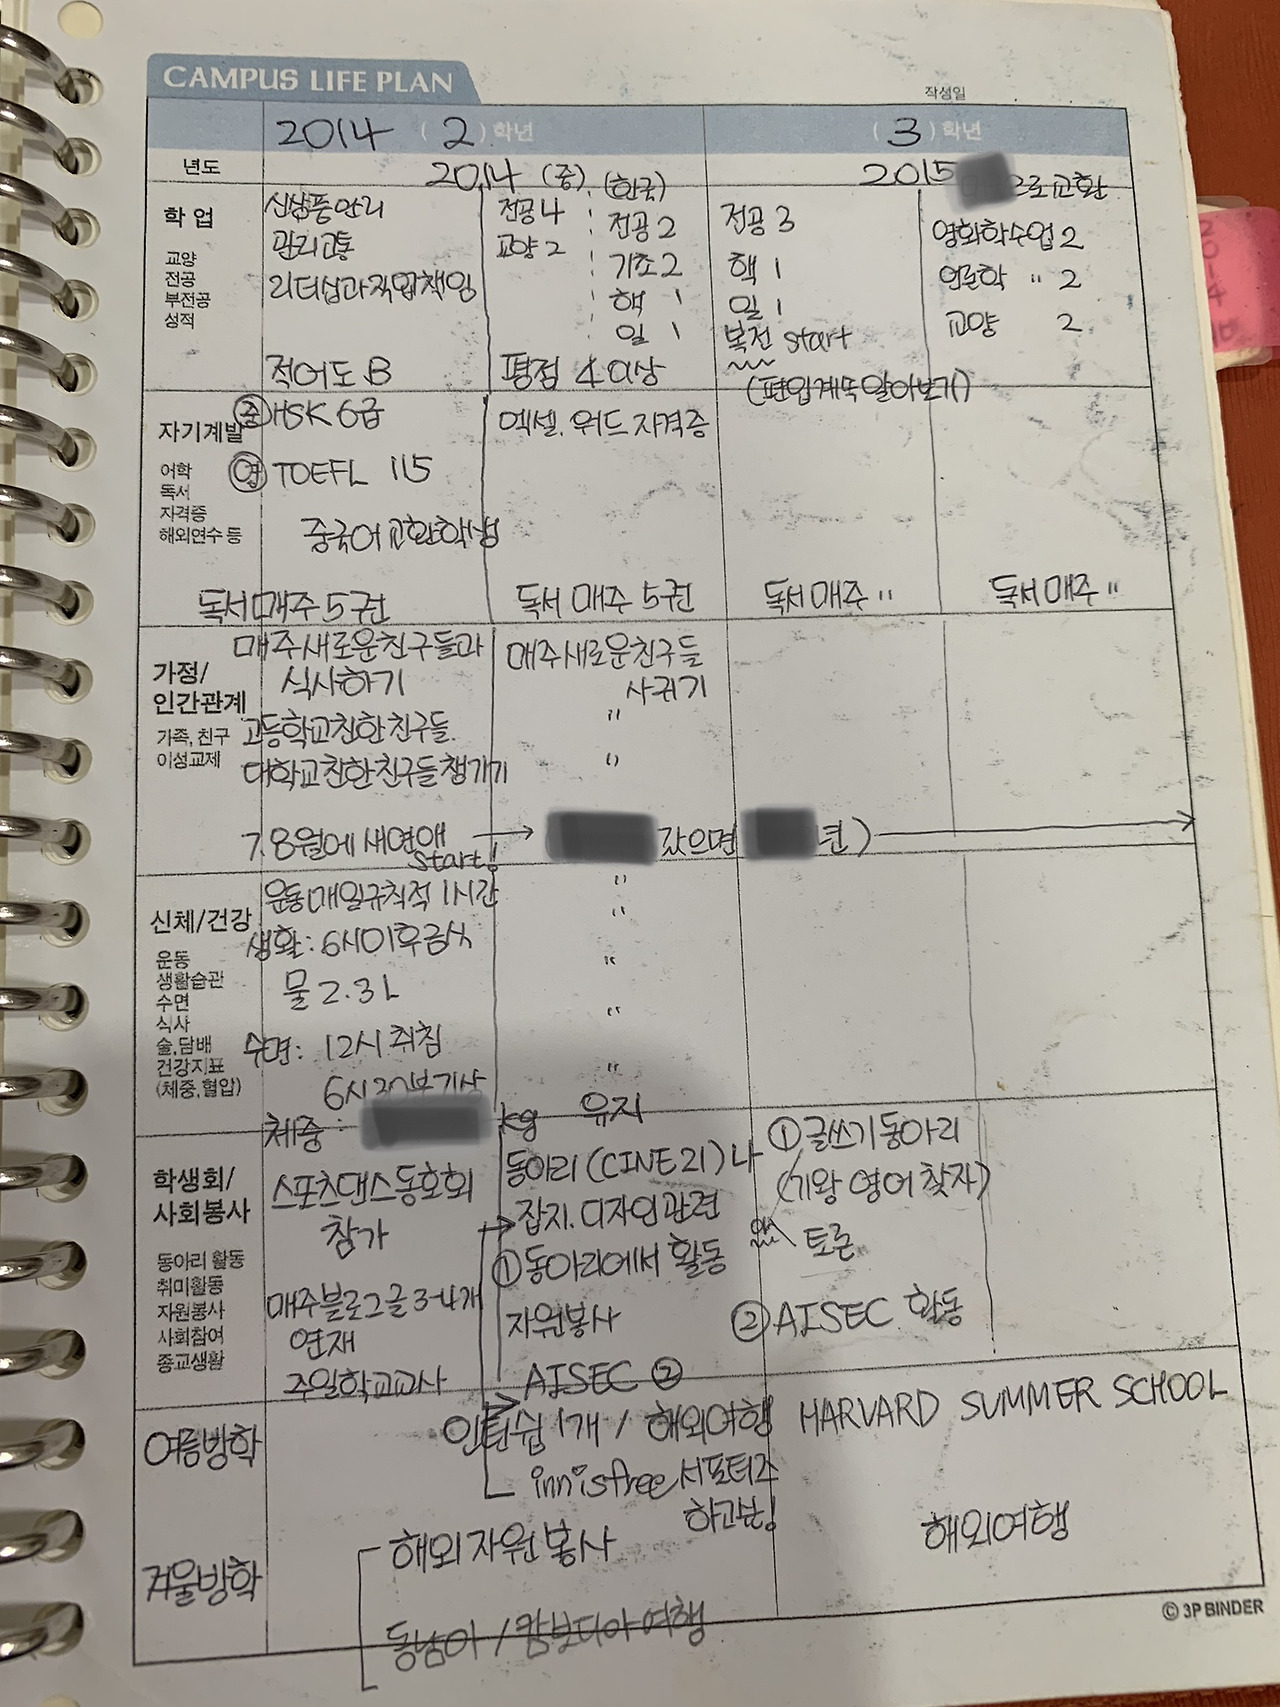 CAMPUS LIFE PLAN
작성일
2014 ( 2 ) 학년
( 3 ) 학년
년도
2014 (중) (한국)
2015
로 교환
학 업
교양
전공
부전공
성적
신상품관리
관리고통
리더십과 직업책임
적어도 B
전공 4
교양 2
전공 2
기초 2
핵 1
일 1
평점 4 이상
전공 3
핵 1
일 1
복전 start
(편입계속 알아보기)
영화학수업 2
언론학 〃 2
교양 2
자기계발
어학
독서
자격증
해외연수 등
중 HSK 6급
영 TOEFL 115
중국어 교환학생
독서 매주 5권
엑셀. 워드 자격증
독서 매주 5권
독서 매주 〃
독서 매주 〃
가정/
인간관계
가족, 친구
이성교제
매주 새로운 친구들과
식사하기
고등학교 친한 친구들.
대학교 친한 친구들 챙기기
7.8월에 새연애
start!
매주 새로운 친구들
사귀기
〃
〃
갔으면
신체/건강
운동
생활습관
수면
식사
술, 담배
건강지표
(체중, 혈압)
운동 매일 규칙적 1시간
생활: 6시 이후 금식
물 2.3L
수면: 12시 취침
6시 30분 기상
체중:
kg 유지
〃
〃
〃
〃
〃
학생회/
사회봉사
동아리 활동
취미활동
자원봉사
사회참여
종교생활
스포츠댄스 동호회
참가
매주 블로그 글 3-4개
연재
주일학교 교사
동아리 (CINE21) 나
잡지. 디자인 관련
① 동아리에서 활동
자원봉사
AISEC ②
① 글쓰기 동아리
(기왕 영어 찾자)
토론
② AISEC 활동
여름방학
인턴쉽 1개 / 해외여행
innisfree 서포터즈
하고픔!
HARVARD SUMMER SCHOOL
겨울방학
해외 자원봉사
동남아 / 캄보디아 여행
해외여행
© 3P BINDER